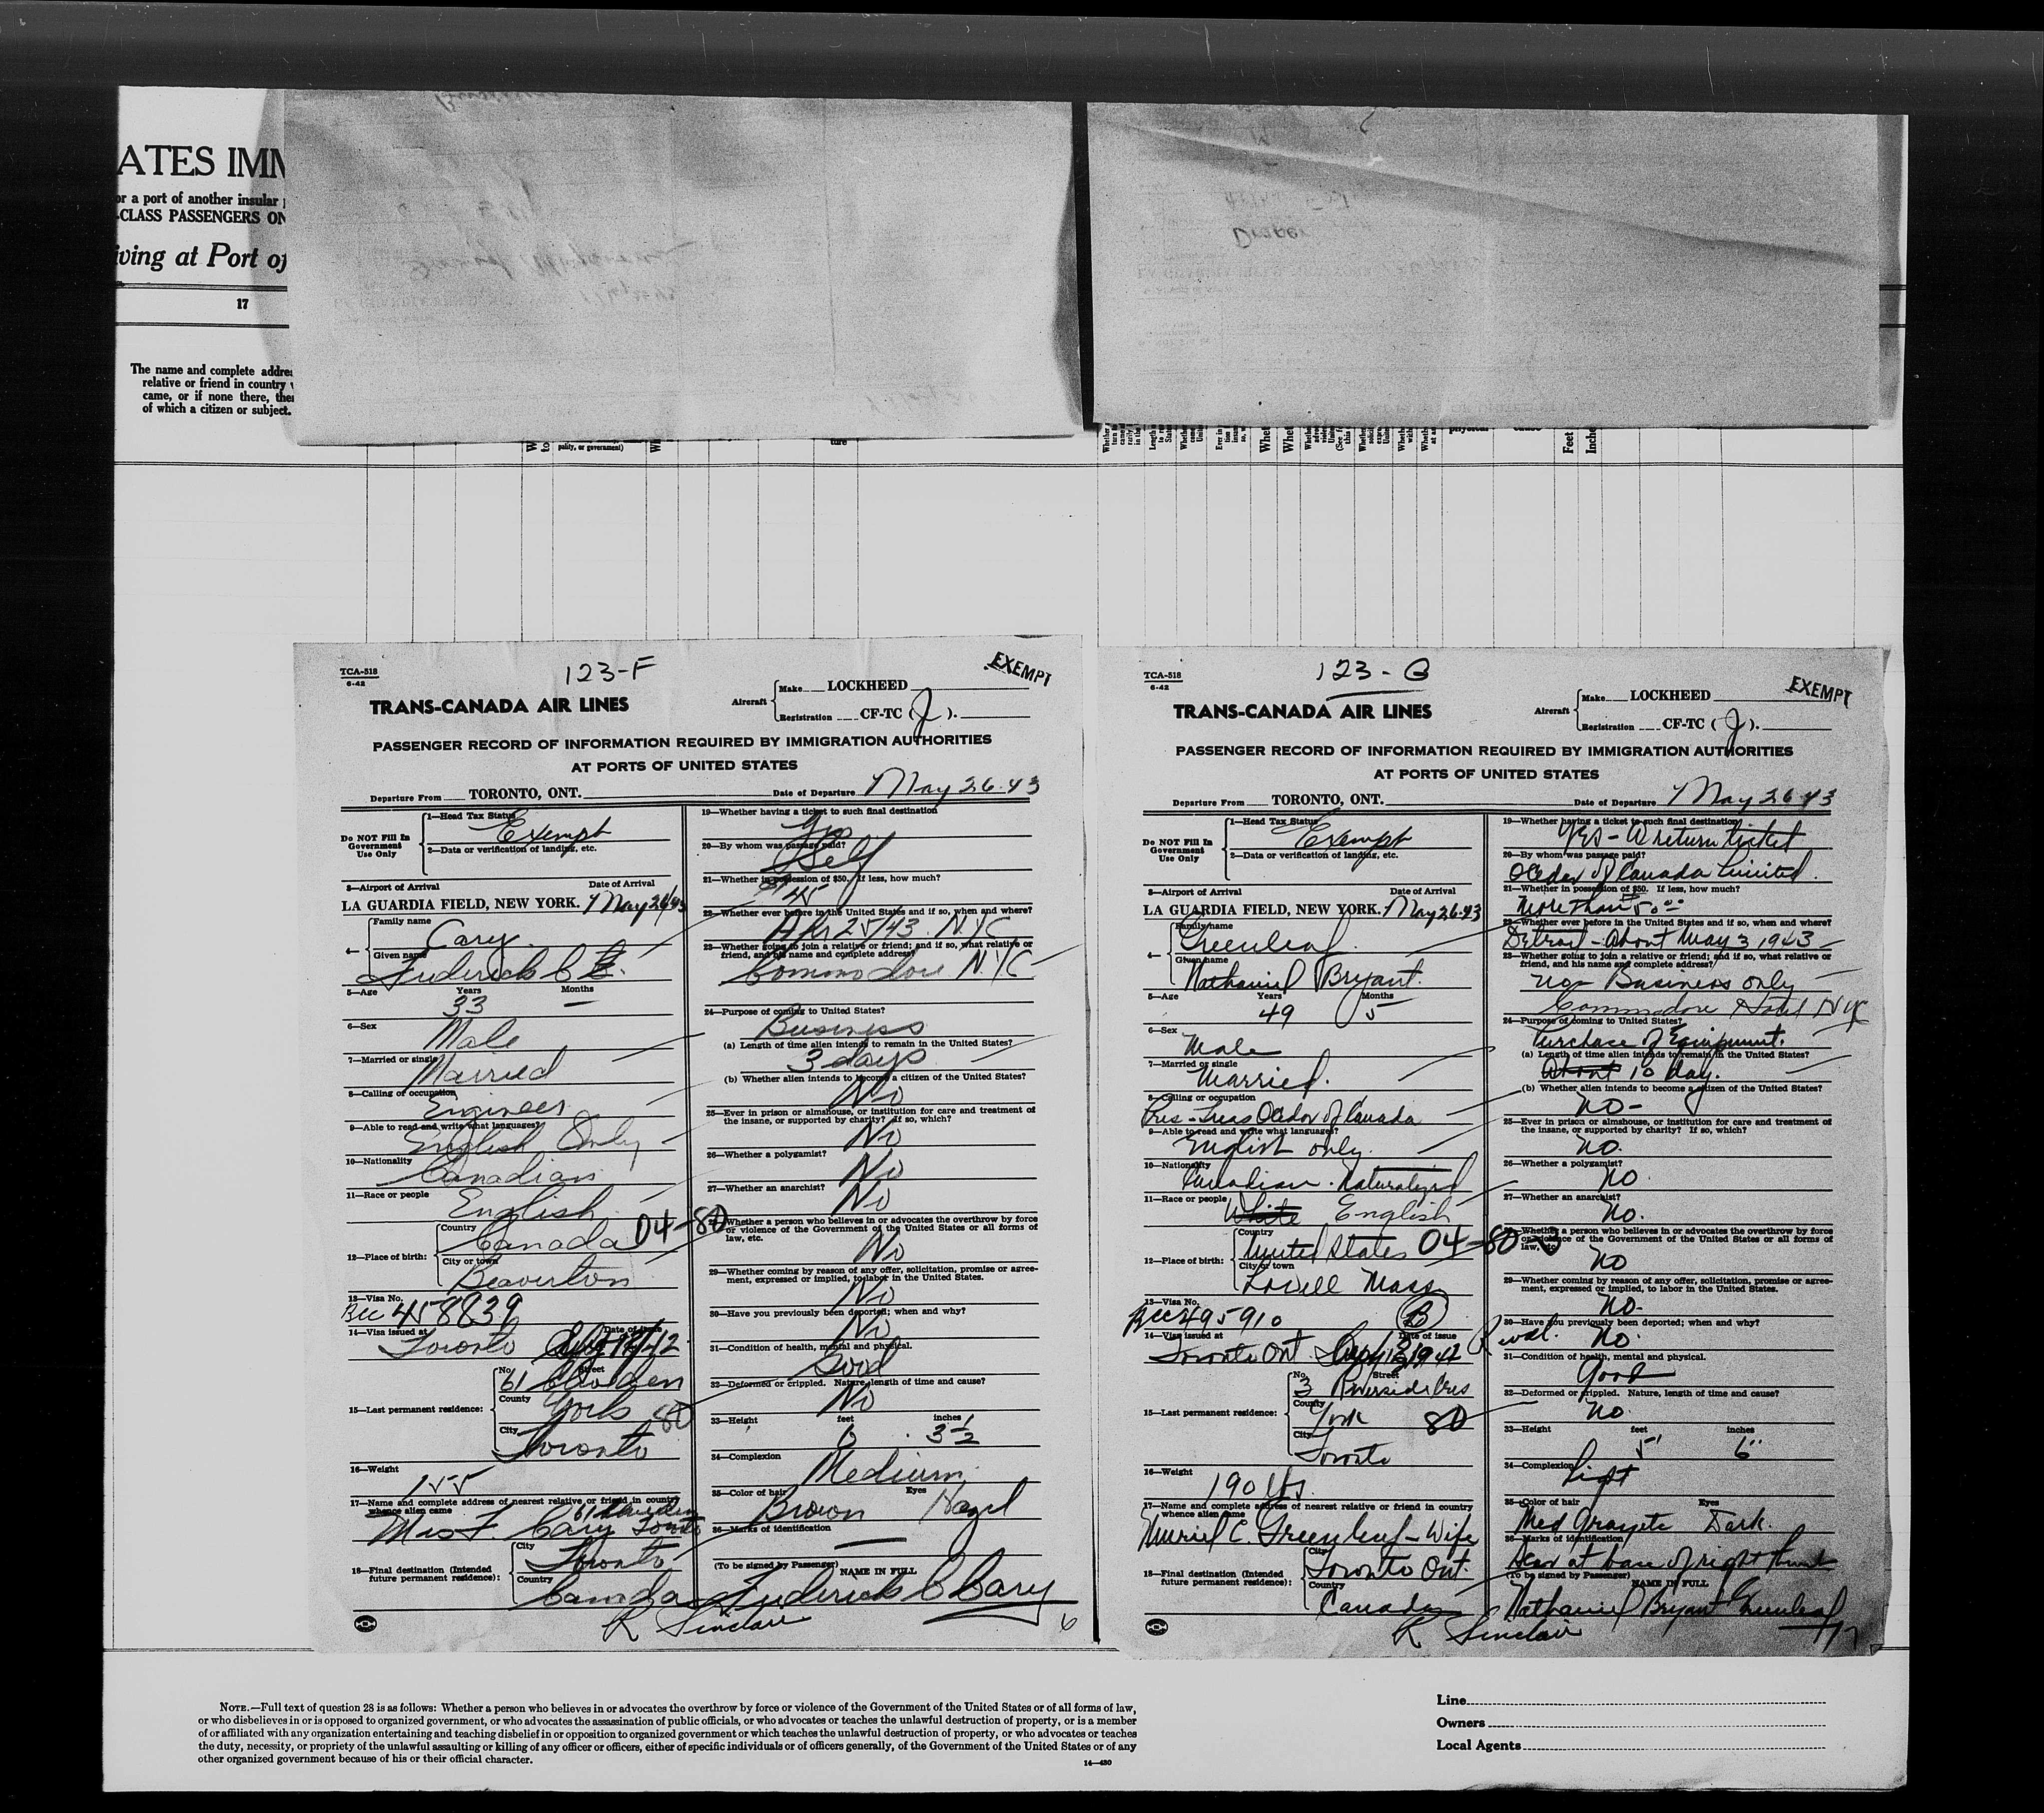 ATES IMM
or a port of another insular
-CLASS PASSENGERS ON
iving at Port of
17
The name and complete addre
relative or friend in country
came, or if none there, the
of which a citizen or subject.
pality, or government)
ture
Feet
Inche
Draper
TCA-518
6-42
123-F
EXEMPT
TRANS-CANADA AIR LINES
Aircraft
Make LOCKHEED
Registration CF-TC (J).
PASSENGER RECORD OF INFORMATION REQUIRED BY IMMIGRATION AUTHORITIES
AT PORTS OF UNITED STATES
Departure From TORONTO, ONT. Date of Departure May 26.43
Do NOT Fill In Government Use Only
1—Head Tax Status
Exempt
2—Data or verification of landing, etc.
3—Airport of Arrival Date of Arrival
LA GUARDIA FIELD, NEW YORK. May 26/43
4—
Family name
Cary.
Given name
Frederick C
5—Age Years Months
33 —
6—Sex
Male
7—Married or single
Married
8—Calling or occupation
Engineer
9—Able to read and write what languages?
English Only
10—Nationality
Canadian
11—Race or people
English
12—Place of birth:
Country
Canada 04-80
City or town
Beaverton
13—Visa No.
BCC 458839
14—Visa issued at Date of issue
Toronto
15—Last permanent residence:
No. Street
61
County
York 80
City
Toronto
16—Weight
155
17—Name and complete address of nearest relative or friend in country
whence alien came
Mrs F Cary Toronto
18—Final destination (Intended
future permanent residence):
City
Toronto
Country
Canada
19—Whether having a ticket to such final destination
Yes
20—By whom was passage paid?
Self
21—Whether in possession of $50. If less, how much?
$45
22—Whether ever before in the United States and if so, when and where?
Apr 25/43. NYC
23—Whether going to join a relative or friend; and if so, what relative or
friend, and his name and complete address?
Commodore N.Y.C
24—Purpose of coming to United States?
Business
(a) Length of time alien intends to remain in the United States?
3 days
(b) Whether alien intends to become a citizen of the United States?
No
25—Ever in prison or almshouse, or institution for care and treatment of
the insane, or supported by charity? If so, which?
No
26—Whether a polygamist?
No
27—Whether an anarchist?
No
28—Whether a person who believes in or advocates the overthrow by force
or violence of the Government of the United States or all forms of
law, etc.
No
29—Whether coming by reason of any offer, solicitation, promise or agree-
ment, expressed or implied, to labor in the United States.
No
30—Have you previously been deported; when and why?
No
31—Condition of health, mental and physical.
Good
32—Deformed or crippled. Nature, length of time and cause?
No
33—Height feet inches
6 3 1/2
34—Complexion
Medium
35—Color of hair Eyes
Brown Hazel
36—Marks of identification
—
(To be signed by Passenger) NAME IN FULL
Frederick C Cary
R Sinclair
6
TCA-518
6-42
123-G
EXEMPT
TRANS-CANADA AIR LINES
Aircraft
Make LOCKHEED
Registration CF-TC (J).
PASSENGER RECORD OF INFORMATION REQUIRED BY IMMIGRATION AUTHORITIES
AT PORTS OF UNITED STATES
Departure From TORONTO, ONT. Date of Departure May 26 43
Do NOT Fill In Government Use Only
1—Head Tax Status
Exempt
2—Data or verification of landing, etc.
3—Airport of Arrival Date of Arrival
LA GUARDIA FIELD, NEW YORK. May 26.43
4—
Family name
Greenleaf.
Given name
Nathaniel Bryant.
5—Age Years Months
49 5
6—Sex
Male
7—Married or single
Married.
8—Calling or occupation
Pres-Treas of Canada
9—Able to read and write what languages?
English only.
10—Nationality
Canadian. Naturalized
11—Race or people
White English
12—Place of birth:
Country
United States 04-80-
City or town
Lowell Mass
13—Visa No.
BCC 495910 B
14—Visa issued at Date of issue
Toronto Ont
15—Last permanent residence:
No. Street
3 Riverside Cres
County
York 80
City
Toronto
16—Weight
190 lbs.
17—Name and complete address of nearest relative or friend in country
whence alien came
Muriel C. Greenleaf - Wife
18—Final destination (Intended
future permanent residence):
City
Toronto Ont.
Country
Canada
19—Whether having a ticket to such final destination
Yes - a return ticket
20—By whom was passage paid?
of Canada Limited.
21—Whether in possession of $50. If less, how much?
More than $50.00
22—Whether ever before in the United States and if so, when and where?
Detroit - about May 3 1943
23—Whether going to join a relative or friend; and if so, what relative or
friend, and his name and complete address?
no - Business only
Commodore Hotel NYC
24—Purpose of coming to United States?
Purchase of Equipment.
(a) Length of time alien intends to remain in the United States?
About 10 day.
(b) Whether alien intends to become a citizen of the United States?
no-
25—Ever in prison or almshouse, or institution for care and treatment of
the insane, or supported by charity? If so, which?
no.
26—Whether a polygamist?
no
27—Whether an anarchist?
no.
28—Whether a person who believes in or advocates the overthrow by force
or violence of the Government of the United States or all forms of
law, etc.
no
29—Whether coming by reason of any offer, solicitation, promise or agree-
ment, expressed or implied, to labor in the United States.
no-
30—Have you previously been deported; when and why?
no.
31—Condition of health, mental and physical.
Good
32—Deformed or crippled. Nature, length of time and cause?
no.
33—Height feet inches
5' 6"
34—Complexion
Light
35—Color of hair Eyes
Med Dark.
36—Marks of identification
Scar at base of right thumb
(To be signed by Passenger) NAME IN FULL
Nathaniel Bryant Greenleaf
R Sinclair
NOTE.—Full text of question 28 is as follows: Whether a person who believes in or advocates the overthrow by force or violence of the Government of the United States or of all forms of law,
or who disbelieves in or is opposed to organized government, or who advocates the assassination of public officials, or who advocates or teaches the unlawful destruction of property, or is a member
of or affiliated with any organization entertaining and teaching disbelief in or opposition to organized government or which teaches the unlawful destruction of property, or who advocates or teaches
the duty, necessity, or propriety of the unlawful assaulting or killing of any officer or officers, either of specific individuals or of officers generally, of the Government of the United States or of any
other organized government because of his or their official character.
14—430
Line
Owners
Local Agents